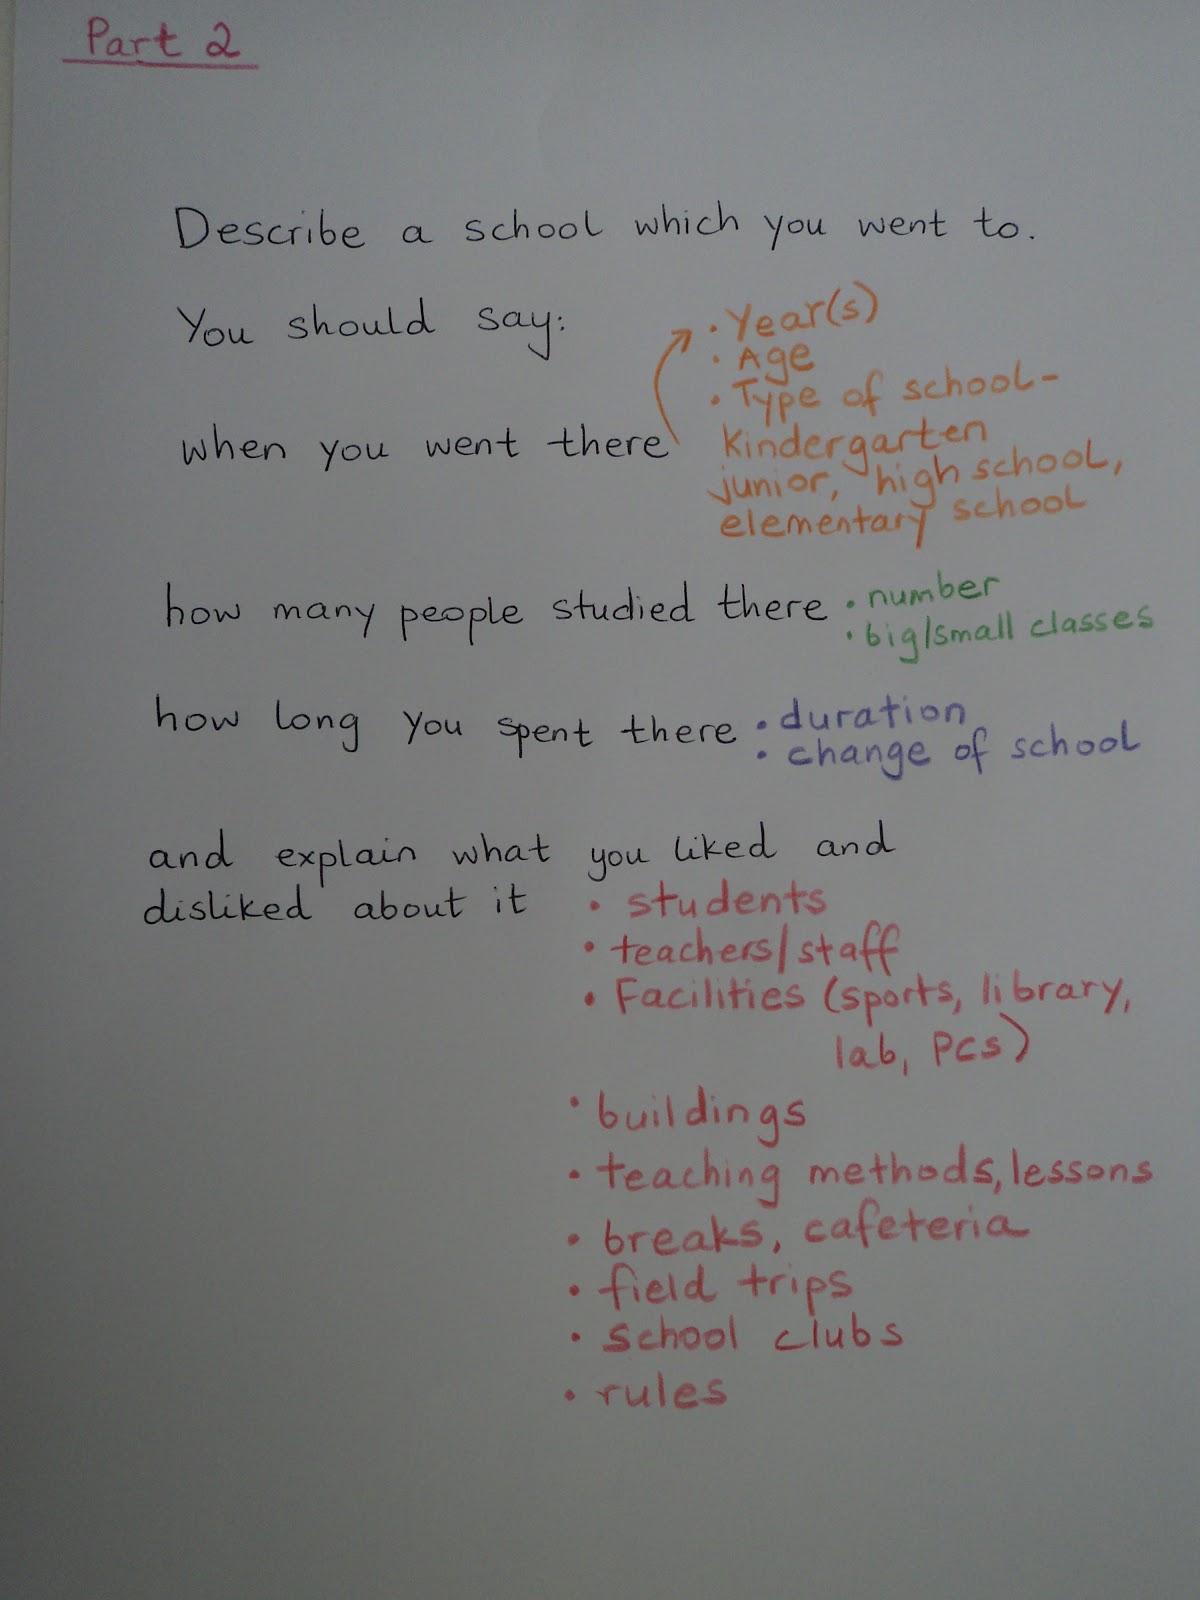 Part 2
Describe a school which you went to.
You should say:
• Year(s)
• Age
• Type of school-
when you went there
kindergarten
junior, high school,
elementary school
how many people studied there
• number
• big/small classes
how long you spent there
• duration
• change of school
and explain what you liked and
disliked about it
• students
• teachers/staff
• Facilities (sports, library,
lab, PCs)
• buildings
• teaching methods, lessons
• breaks, cafeteria
• field trips
• school clubs
• rules